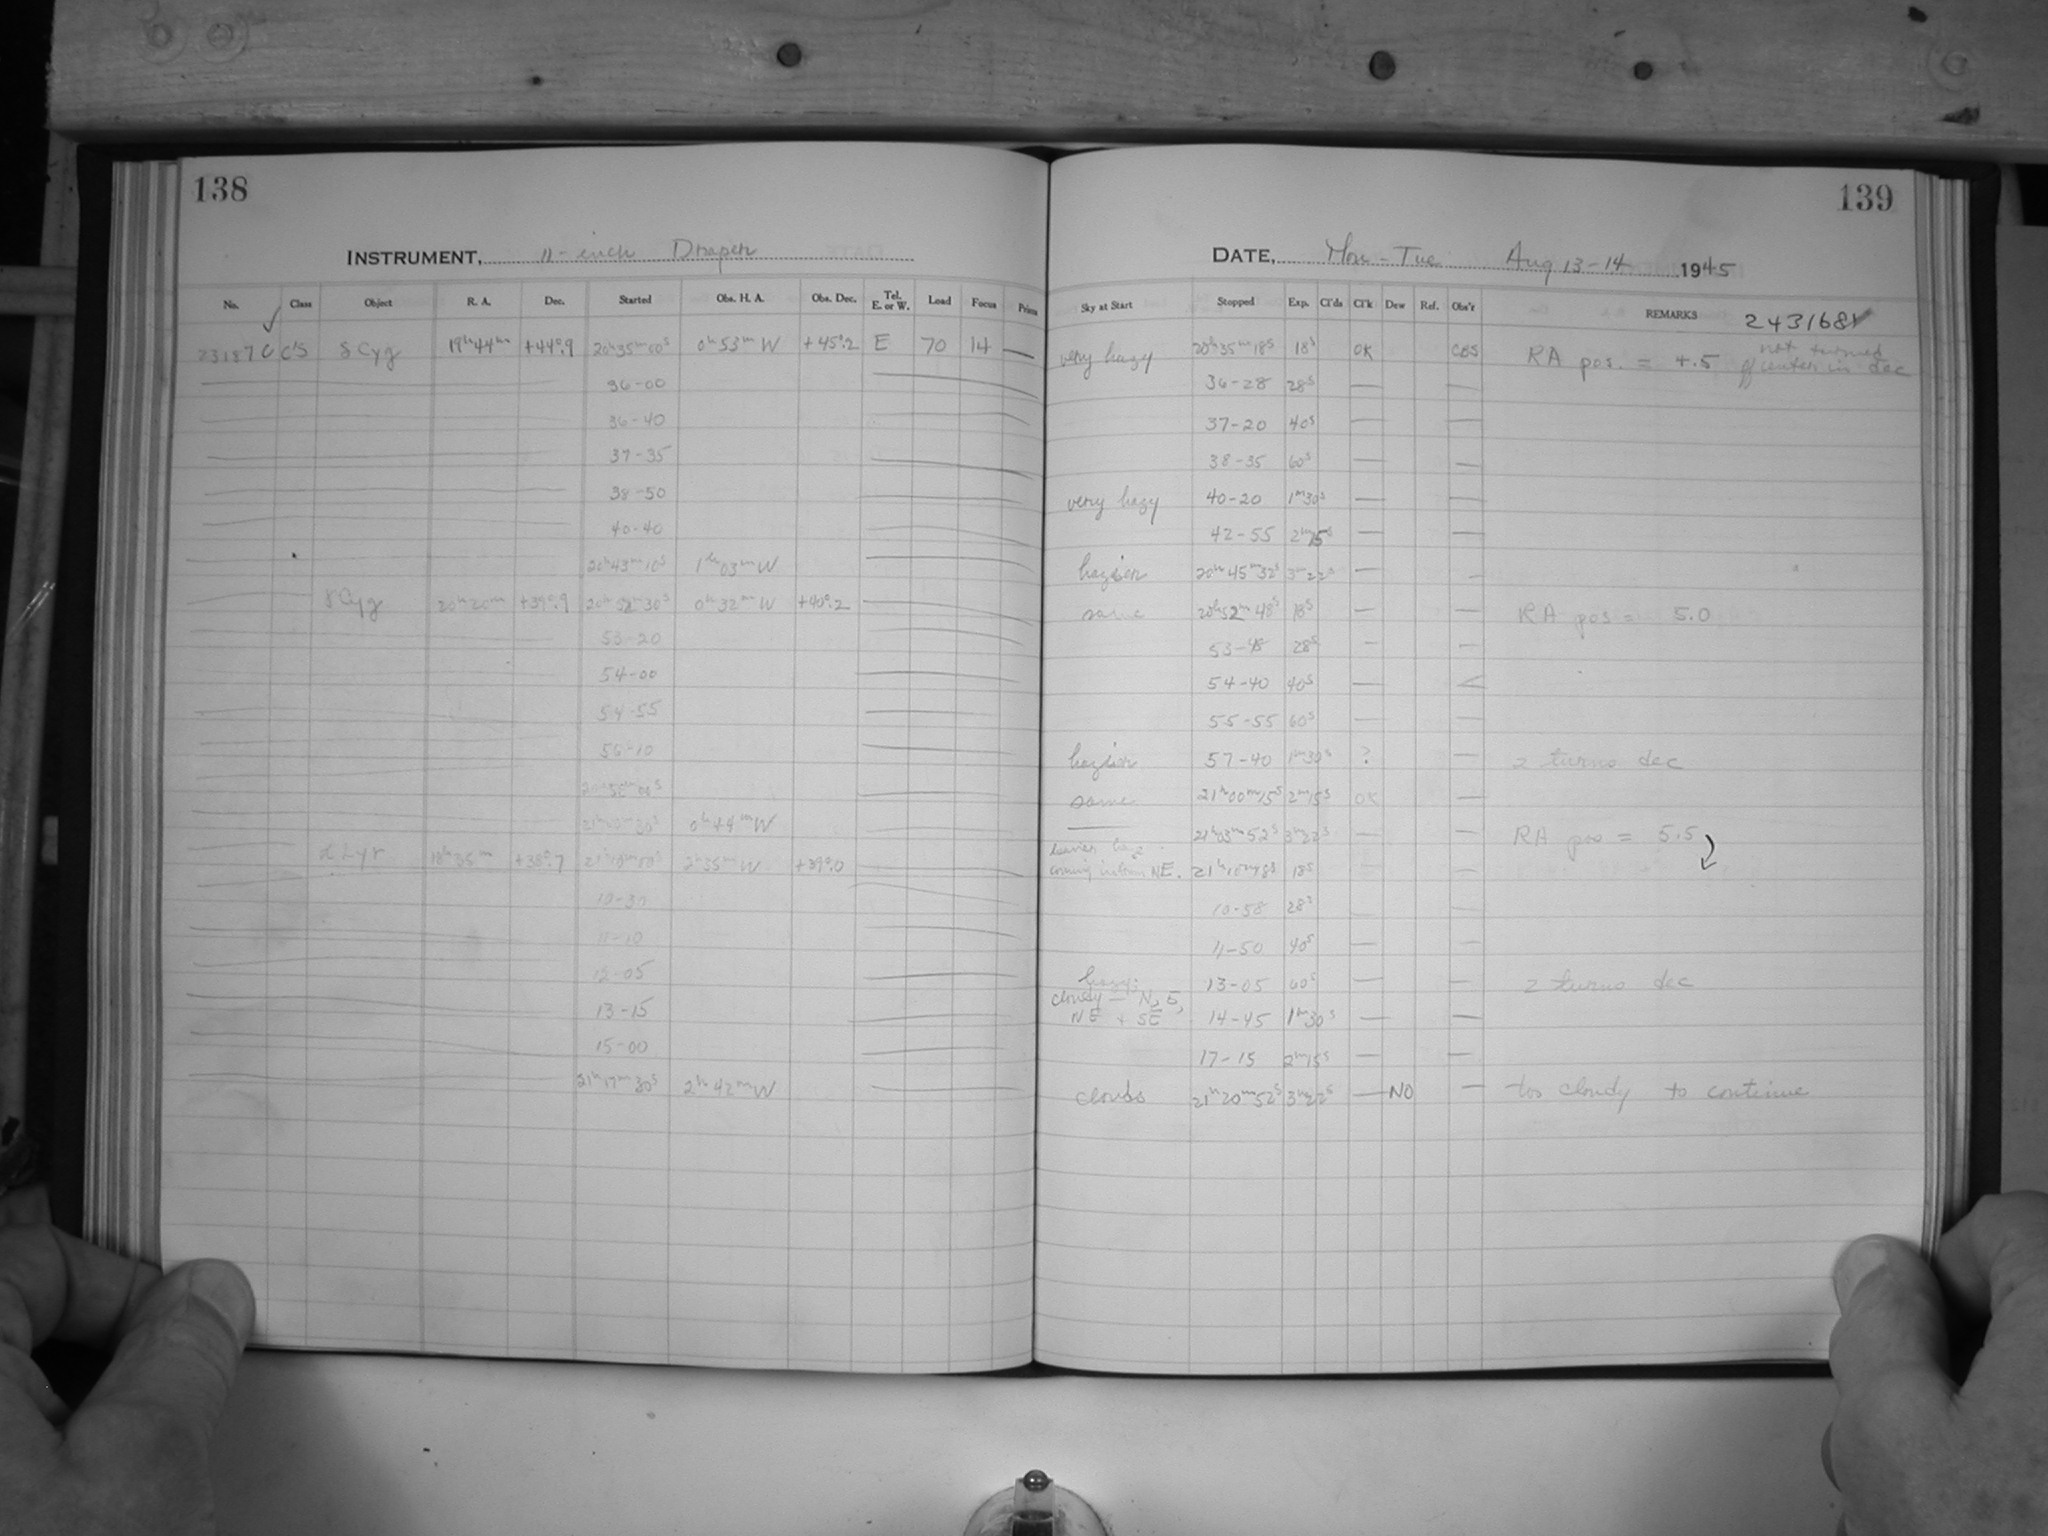 138
INSTRUMENT, 11-inch Draper
No. Class Object R. A. Dec. Started Obs. H. A. Obs. Dec. Tel. E. or W. Load Focus Prisms
C's δ Cyg 19h44m +44°.9 20h35m00s 0h53mW +45°.2 E 70 14 —
36-00
36-40
37-35
38-50
40-40
20h43m10s 1h03mW
γ Cyg 20h20m +39°.9 20h52m30s 0h32mW +40°.2
53-20
54-00
54-55
56-10
0h44mW
α Lyr 18h35m +38°.7 2h35mW +39°.0
10-30
11-10
12-05
13-15
15-00
21h17m30s 2h42mW
139
DATE, Mon-Tue Aug 13-14 1945
Sky at Start Stopped Exp. Cl'ds Cl'k Dew Ref. Obs'r REMARKS 2431681
very hazy 20h35m18s 18s OK RA pos. = 4.5 not turned
36-28 28s — —
37-20 40s — —
38-35 60s — —
very hazy 40-20 1m30s — —
42-55 2m15s — —
hazier 20h45m32s 3m22s — -
same 20h52m48s 18s — — RA pos = 5.0
53-48 28s — -
54-40 40s —
55-55 60s — —
hazier 57-40 1m30s ? — 2 turns dec
same 21h00m15s 2m15s OK —
— 21h03m52s 3m22s — — RA pos = 5.5
coming in from NE. 21h10m18s 18s
10-58 28s
11-50 40s — —
hazy; 13-05 60s — — 2 turns dec
cloudy — N, E,
NE + SE 14-45 1m30s — —
17-15 2m15s — —
clouds 21h20m52s 3m22s — NO — too cloudy to continue